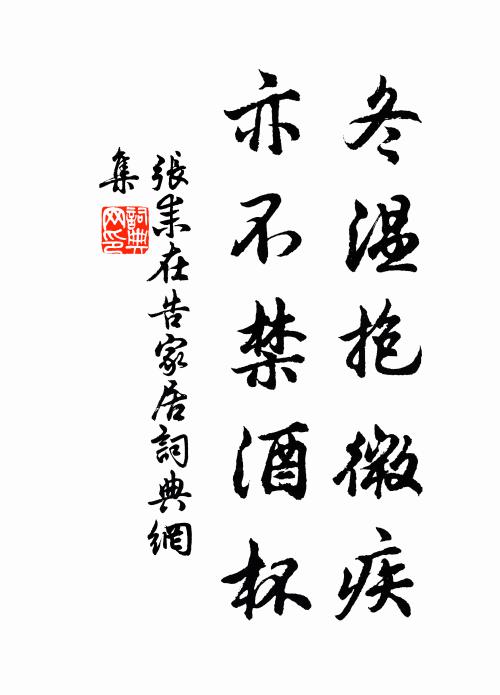 冬温抱微疾
亦不禁酒杯
張耒在告家居詞典網
集
詞典网印